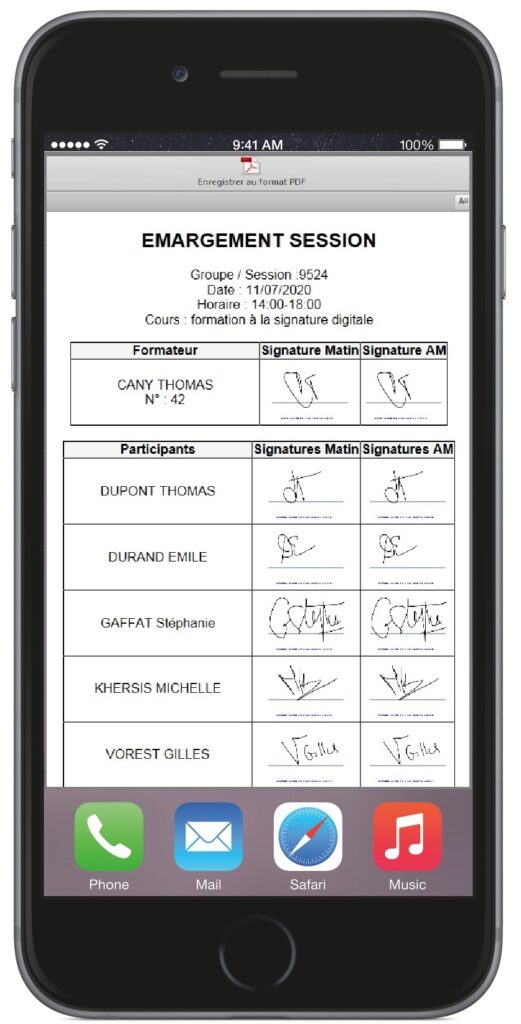 9:41 AM
100%
Enregistrer au format PDF
EMARGEMENT SESSION
Groupe / Session :9524
Date : 11/07/2020
Horaire : 14:00-18:00
Cours : formation à la signature digitale
Formateur Signature Matin Signature AM
CANY THOMAS
N° : 42
Participants Signatures Matin Signatures AM
DUPONT THOMAS
DURAND EMILE
GAFFAT Stéphanie
KHERSIS MICHELLE
VOREST GILLES VGilles VGilles
Phone Mail Safari Music